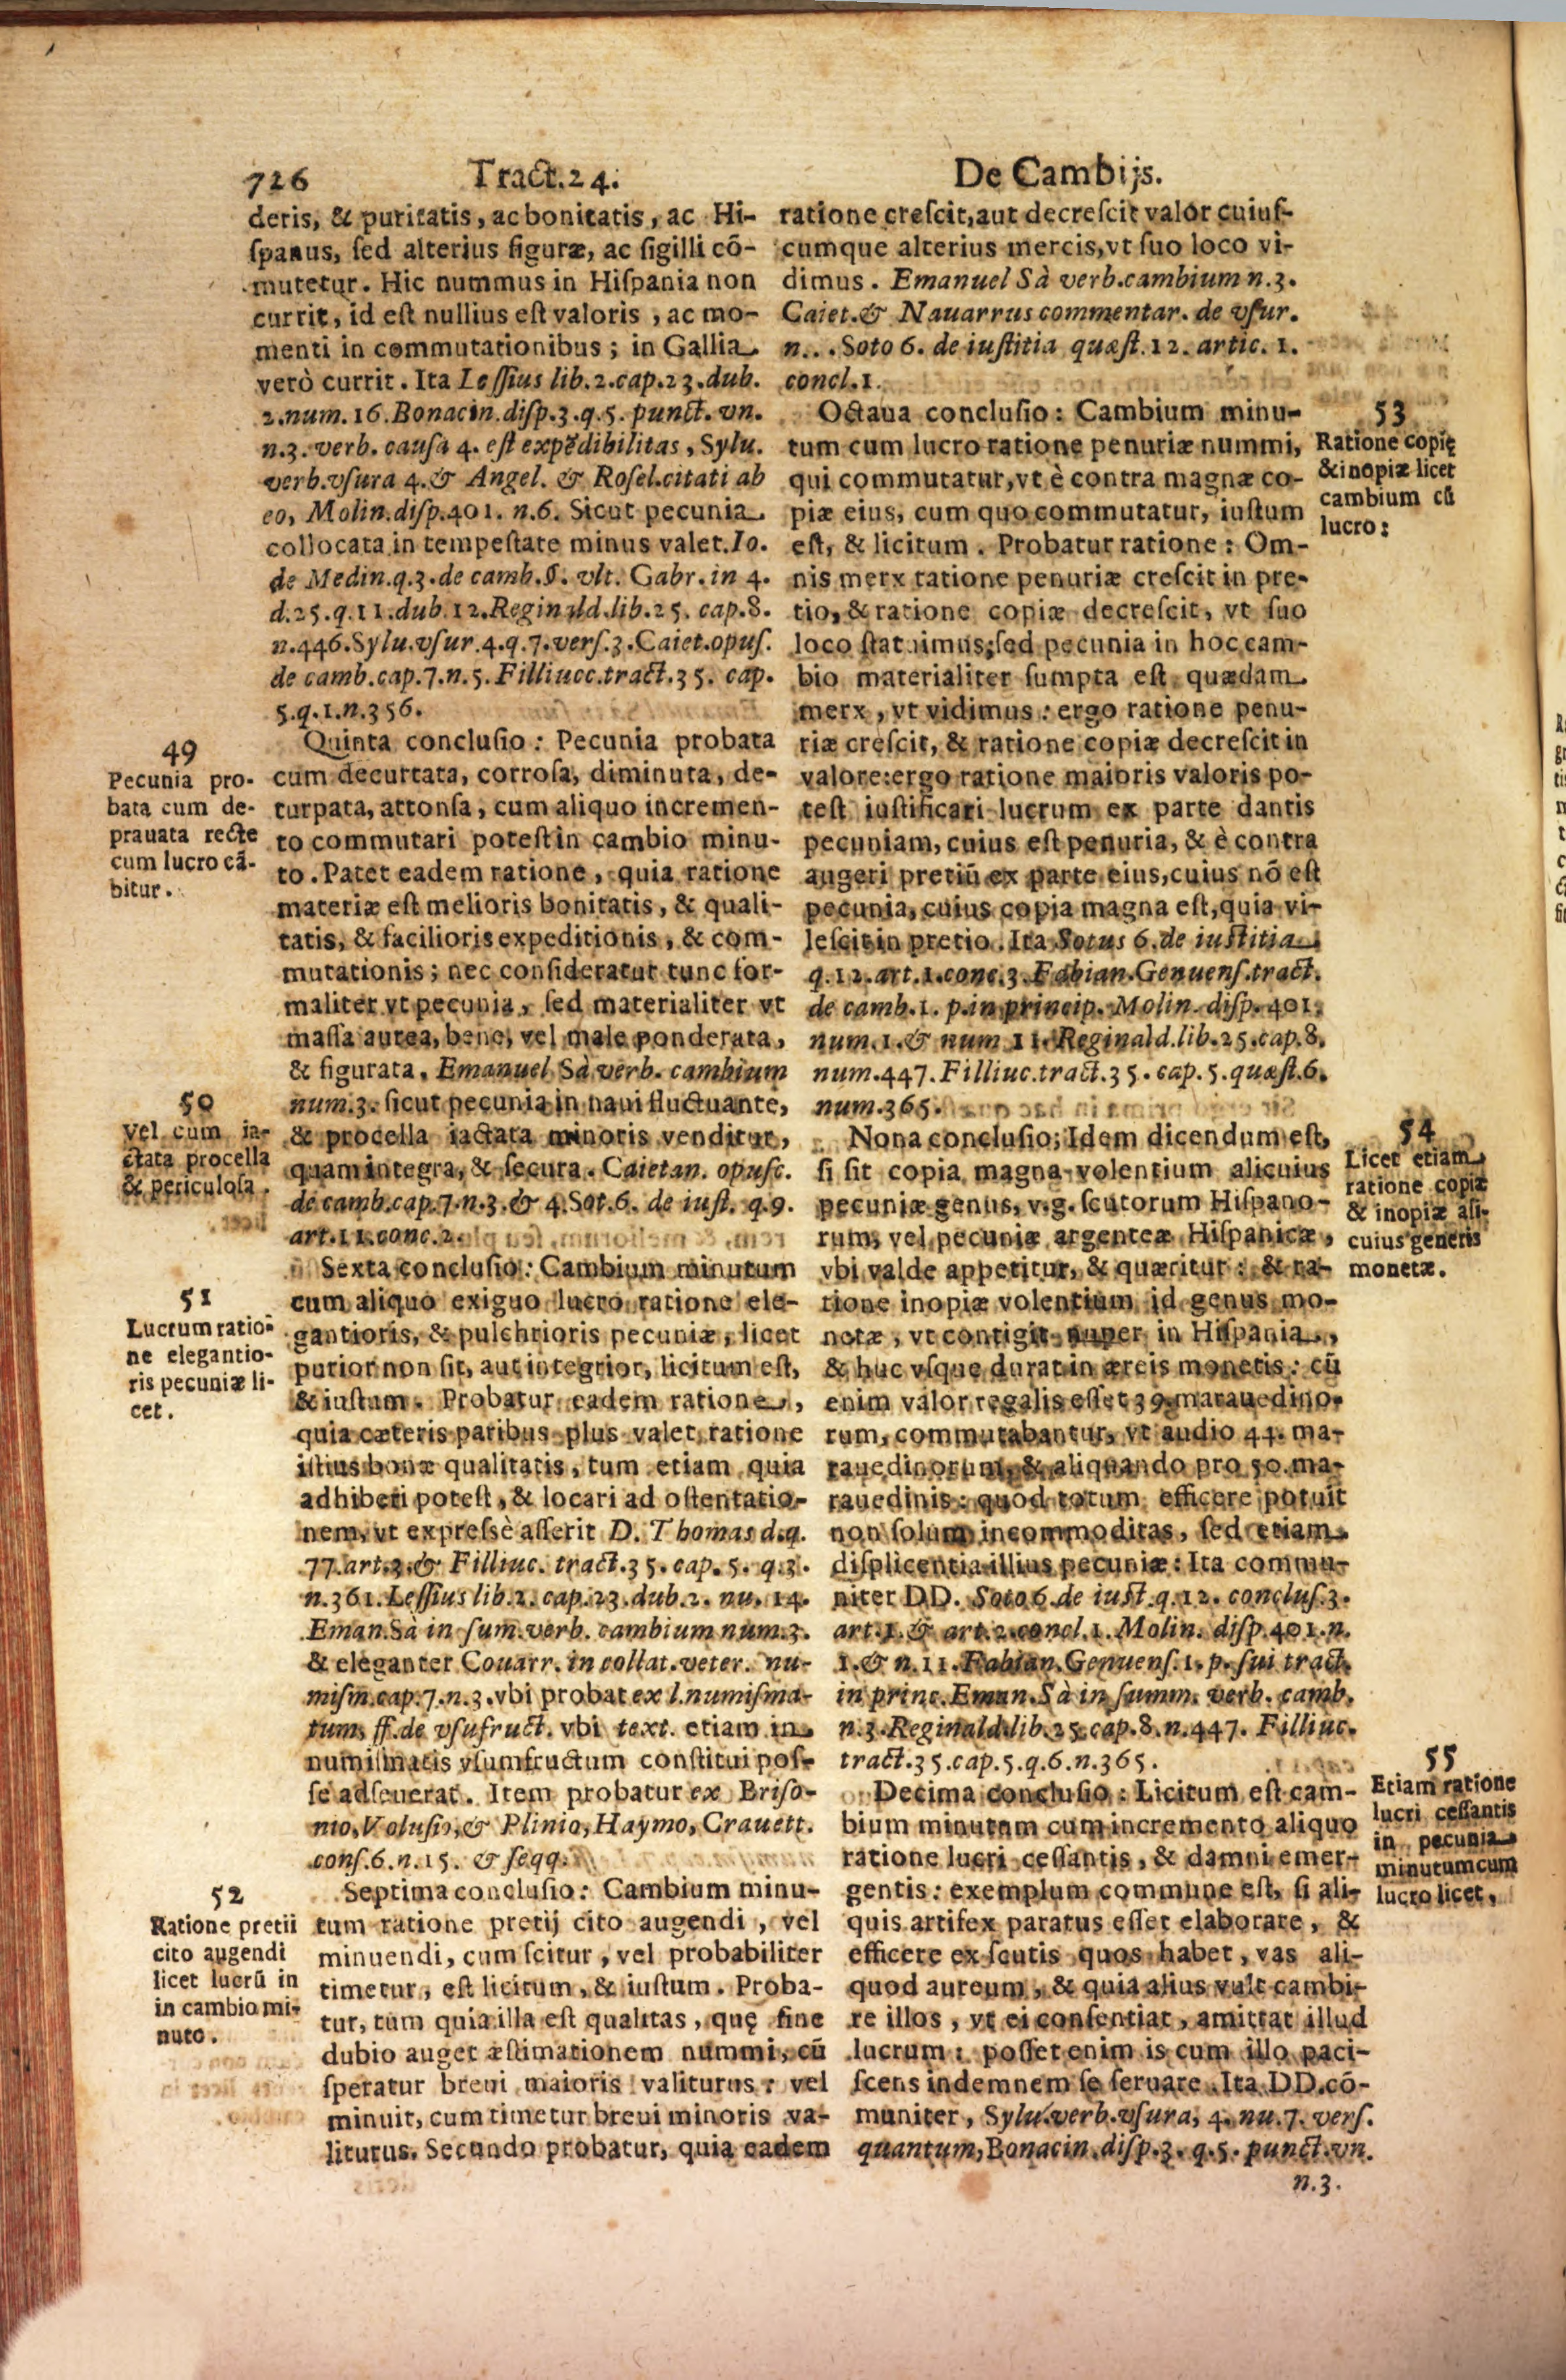 726 Tract.24. De Cambijs.
deris, & puritatis, ac bonitatis, ac Hi-
ſpanus, ſed alterius figuræ, ac ſigilli cō-
mutetur. Hic nummus in Hiſpania non
currit, id eſt nullius eſt valoris, ac mo-
menti in commutationibus; in Gallia
verò currit. Ita Leſſius lib.2.cap.23.dub.
2.num.16.Bonacin.diſp.3.q.5. punct. vn.
n.3. verb. cauſa 4. eſt expēdibilitas, Sylu.
verb.vſura 4.& Angel. & Roſel.citati ab
eo, Molin.diſp.401. n.6. Sicut pecunia
collocata in tempeſtate minus valet. Io.
de Medin.q.3.de camb.§. vlt. Gabr. in 4.
d.25.q.11.dub.12.Reginald.lib.25. cap.8.
n.446.Sylu.vſur.4.q.7.verſ.3.Caiet.opuſ.
de camb.cap.7.n.5.Filliucc.tract.35. cap.
5.q.1.n.356.
49
Pecunia pro-
bata cum de-
prauata recte
cum lucro cā-
bitur.
Quinta concluſio: Pecunia probata
cum decurtata, corroſa, diminuta, de-
turpata, attonſa, cum aliquo incremen-
to commutari poteſt in cambio minu-
to. Patet eadem ratione, quia ratione
materiæ eſt melioris bonitatis, & quali-
tatis, & facilioris expeditionis, & com-
mutationis; nec conſideratur tunc for-
maliter vt pecunia, ſed materialiter vt
maſſa aurea, bene, vel male ponderata,
& figurata. Emanuel Sà verb. cambium
num.3. ſicut pecunia in naui fluctuante,
& procella iactata minoris venditur,
quam integra, & ſecura. Caietan. opuſc.
de camb.cap.7.n.3.& 4.Sot.6. de iuſt. q.9.
art.11.conc.2.
50
Vel cum ia-
ctata procella
& periculoſa.
51
Lucrum ratio-
ne elegantio-
ris pecuniæ li-
cet.
Sexta concluſio: Cambium minutum
cum aliquo exiguo lucro ratione ele-
gantioris, & pulchrioris pecuniæ, licet
purior non ſit, aut integrior, licitum eſt,
& iuſtum. Probatur eadem ratione,
quia cæteris paribus plus valet ratione
iſtius bonæ qualitatis, tum etiam quia
adhiberi poteſt, & locari ad oſtentatio-
nem, vt expreſsè aſſerit D. Thomas d.q.
77.art.3.& Filliuc. tract.35.cap. 5. q.3.
n.361.Leſſius lib.2. cap.23.dub.2. nu. 14.
Eman.Sà in ſum.verb. cambium num.3.
& eleganter Couarr. in collat.veter. nu-
miſm.cap.7.n.3.vbi probat ex l.numiſma-
tum, ff.de vſufruct. vbi text. etiam in
numiſmatis vſumfructum conſtitui poſ-
ſe adſeuerat. Item probatur ex Briſo-
nio, Voluſio, & Plinio, Haymo, Crauett.
conſ.6.n.15. & ſeqq.
52
Ratione pretii
cito augendi
licet lucrū in
in cambio mi-
nuto.
Septima concluſio: Cambium minu-
tum ratione pretij cito augendi, vel
minuendi, cum ſcitur, vel probabiliter
timetur, eſt licitum, & iuſtum. Proba-
tur, tum quia illa eſt qualitas, quę ſine
dubio auget æſtimationem nummi, cū
ſperatur breui maioris valiturus: vel
minuit, cum timetur breui minoris va-
liturus. Secundo probatur, quia eadem
ratione creſcit, aut decreſcit valor cuiuſ-
cumque alterius mercis, vt ſuo loco vi-
dimus. Emanuel Sà verb.cambium n.3.
Caiet.& Nauarrus commentar. de vſur.
n... Soto 6. de iuſtitia quæſt.12. artic. 1.
concl.1.
53
Ratione copię
& inopiæ licet
cambium cū
lucro:
Octaua concluſio: Cambium minu-
tum cum lucro ratione penuriæ nummi,
qui commutatur, vt è contra magnæ co-
piæ eius, cum quo commutatur, iuſtum
eſt, & licitum. Probatur ratione: Om-
nis merx ratione penuriæ creſcit in pre-
tio, & ratione copiæ decreſcit, vt ſuo
loco ſtatuimus; ſed pecunia in hoc cam-
bio materialiter ſumpta eſt quædam
merx, vt vidimus: ergo ratione penu-
riæ creſcit, & ratione copiæ decreſcit in
valore: ergo ratione maioris valoris po-
teſt iuſtificari lucrum ex parte dantis
pecuniam, cuius eſt penuria, & è contra
augeri pretiū ex parte eius, cuius nō eſt
pecunia, cuius copia magna eſt, quia vi-
leſcit in pretio. Ita Sotus 6.de iuſtitia
q.12.art.1.conc.3.Fabian.Genuenſ.tract.
de camb.1. p.in princip. Molin. diſp.401.
num.1.& num 11. Reginald.lib.25.cap.8.
num.447.Filliuc.tract.35. cap.5.quæſt.6.
num.365.
54
Licet etiam
ratione copiæ
& inopiæ ali-
cuius generis
monetæ.
Nona concluſio; Idem dicendum eſt,
ſi ſit copia magna volentium alicuius
pecuniæ genus, v.g. ſcutorum Hiſpano-
rum, vel pecuniæ argenteæ Hiſpanicæ,
vbi valde appetitur, & quæritur: & ra-
tione inopiæ volentium id genus mo-
notæ, vt contigit nuper in Hiſpania,
& huc vſque durat in æreis monetis: cū
enim valor regalis eſſet 39. marauedino-
rum, commutabantur, vt audio 44. ma-
rauedinorum, & aliquando pro 50. ma-
rauedinis: quod totum efficere potuit
non ſolum incommoditas, ſed etiam
diſplicentia illius pecuniæ: Ita commu-
niter DD. Soto 6.de iuſt.q.12. concluſ.3.
art.1.& art.2.concl.1. Molin. diſp.401.n.
1.& n.11.Fabian.Genuenſ.1.p. ſui tract.
in princ.Eman.Sà in ſumm. verb. camb.
n.3.Reginald.lib.25.cap.8.n.447. Filliuc.
tract.35.cap.5.q.6.n.365.
55
Etiam ratione
lucri ceſſantis
in pecunia
minutum cum
lucro licet,
Decima concluſio: Licitum eſt cam-
bium minutum cum incremento aliquo
ratione lucri ceſſantis, & damni emer-
gentis: exemplum commune eſt, ſi ali-
quis artifex paratus eſſet elaborare, &
efficere ex ſcutis quos habet, vas ali-
quod aureum, & quia alius vult cambi-
re illos, vt ei conſentiat, amittat illud
lucrum: poſſet enim is cum illo paci-
ſcens indemnem ſe ſeruare. Ita DD.cō-
muniter, Sylu.verb.vſura, 4. nu.7. verſ.
quantum, Bonacin.diſp.3. q.5. punct.vn.
n.3.